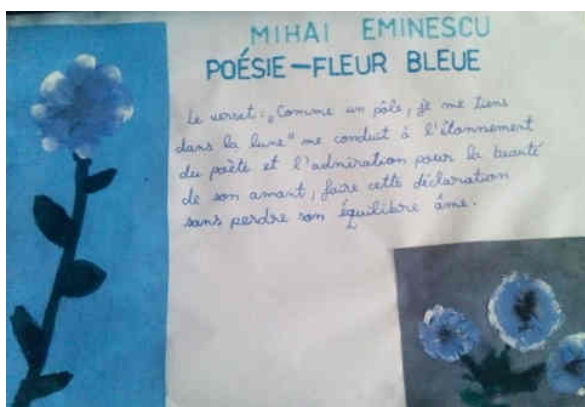 MIHAI EMINESCU
POÉSIE—FLEUR BLEUE
Le verset: „Comme un pôle, je me tiens
dans la lune" me conduit à l'étonnement
du poète et l'admiration pour la beauté
de son amant, faire cette déclaration
sans perdre son équilibre âme.